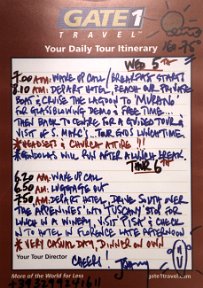 GATE 1
TRAVEL
Your Daily Tour Itinerary
WED 5TH
7.00 AM: WAKE UP CALL / BREAKFAST STARTS
8.10 AM: DEPART HOTEL, REACH OUR PRIVATE
BOAT & CRUISE THE LAGOON TO "MURANO"
FOR GLASSBLOWING DEMO & FREE TIME...
THEN BACK TO CENTRE FOR A GUIDED TOUR &
VISIT OF S. MARC'S... TOUR ENDS LUNCHTIME.
* HEADSETS & CHURCH ATTIRE !!!
* GONDOLAS WILL RUN AFTER A LUNCH BREAK
THUR 6TH
6.20 AM: WAKE UP CALL
6.50 AM: LUGGAGE OUT
7.50 AM: DEPART HOTEL, DRIVE SOUTH OVER
THE APPENNINES INTO TUSCANY STOP FOR
LUNCH IN A WINERY, VISIT "PISA" & CHECK
INTO HOTEL IN FLORENCE LATE AFTERNOON
* VERY CASUAL DAY, DINNER ON OWN
Your Tour Director
CHEERS!
More of the World for Less
gate1travel.com